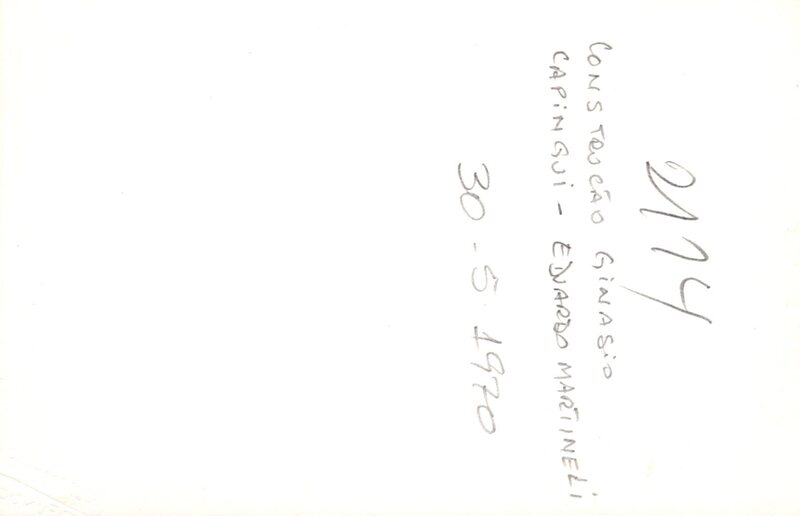 2114
CONSTRUÇÃO GINASIO
CAPINGUI - EDUARDO MARTINELI
30-5.1970